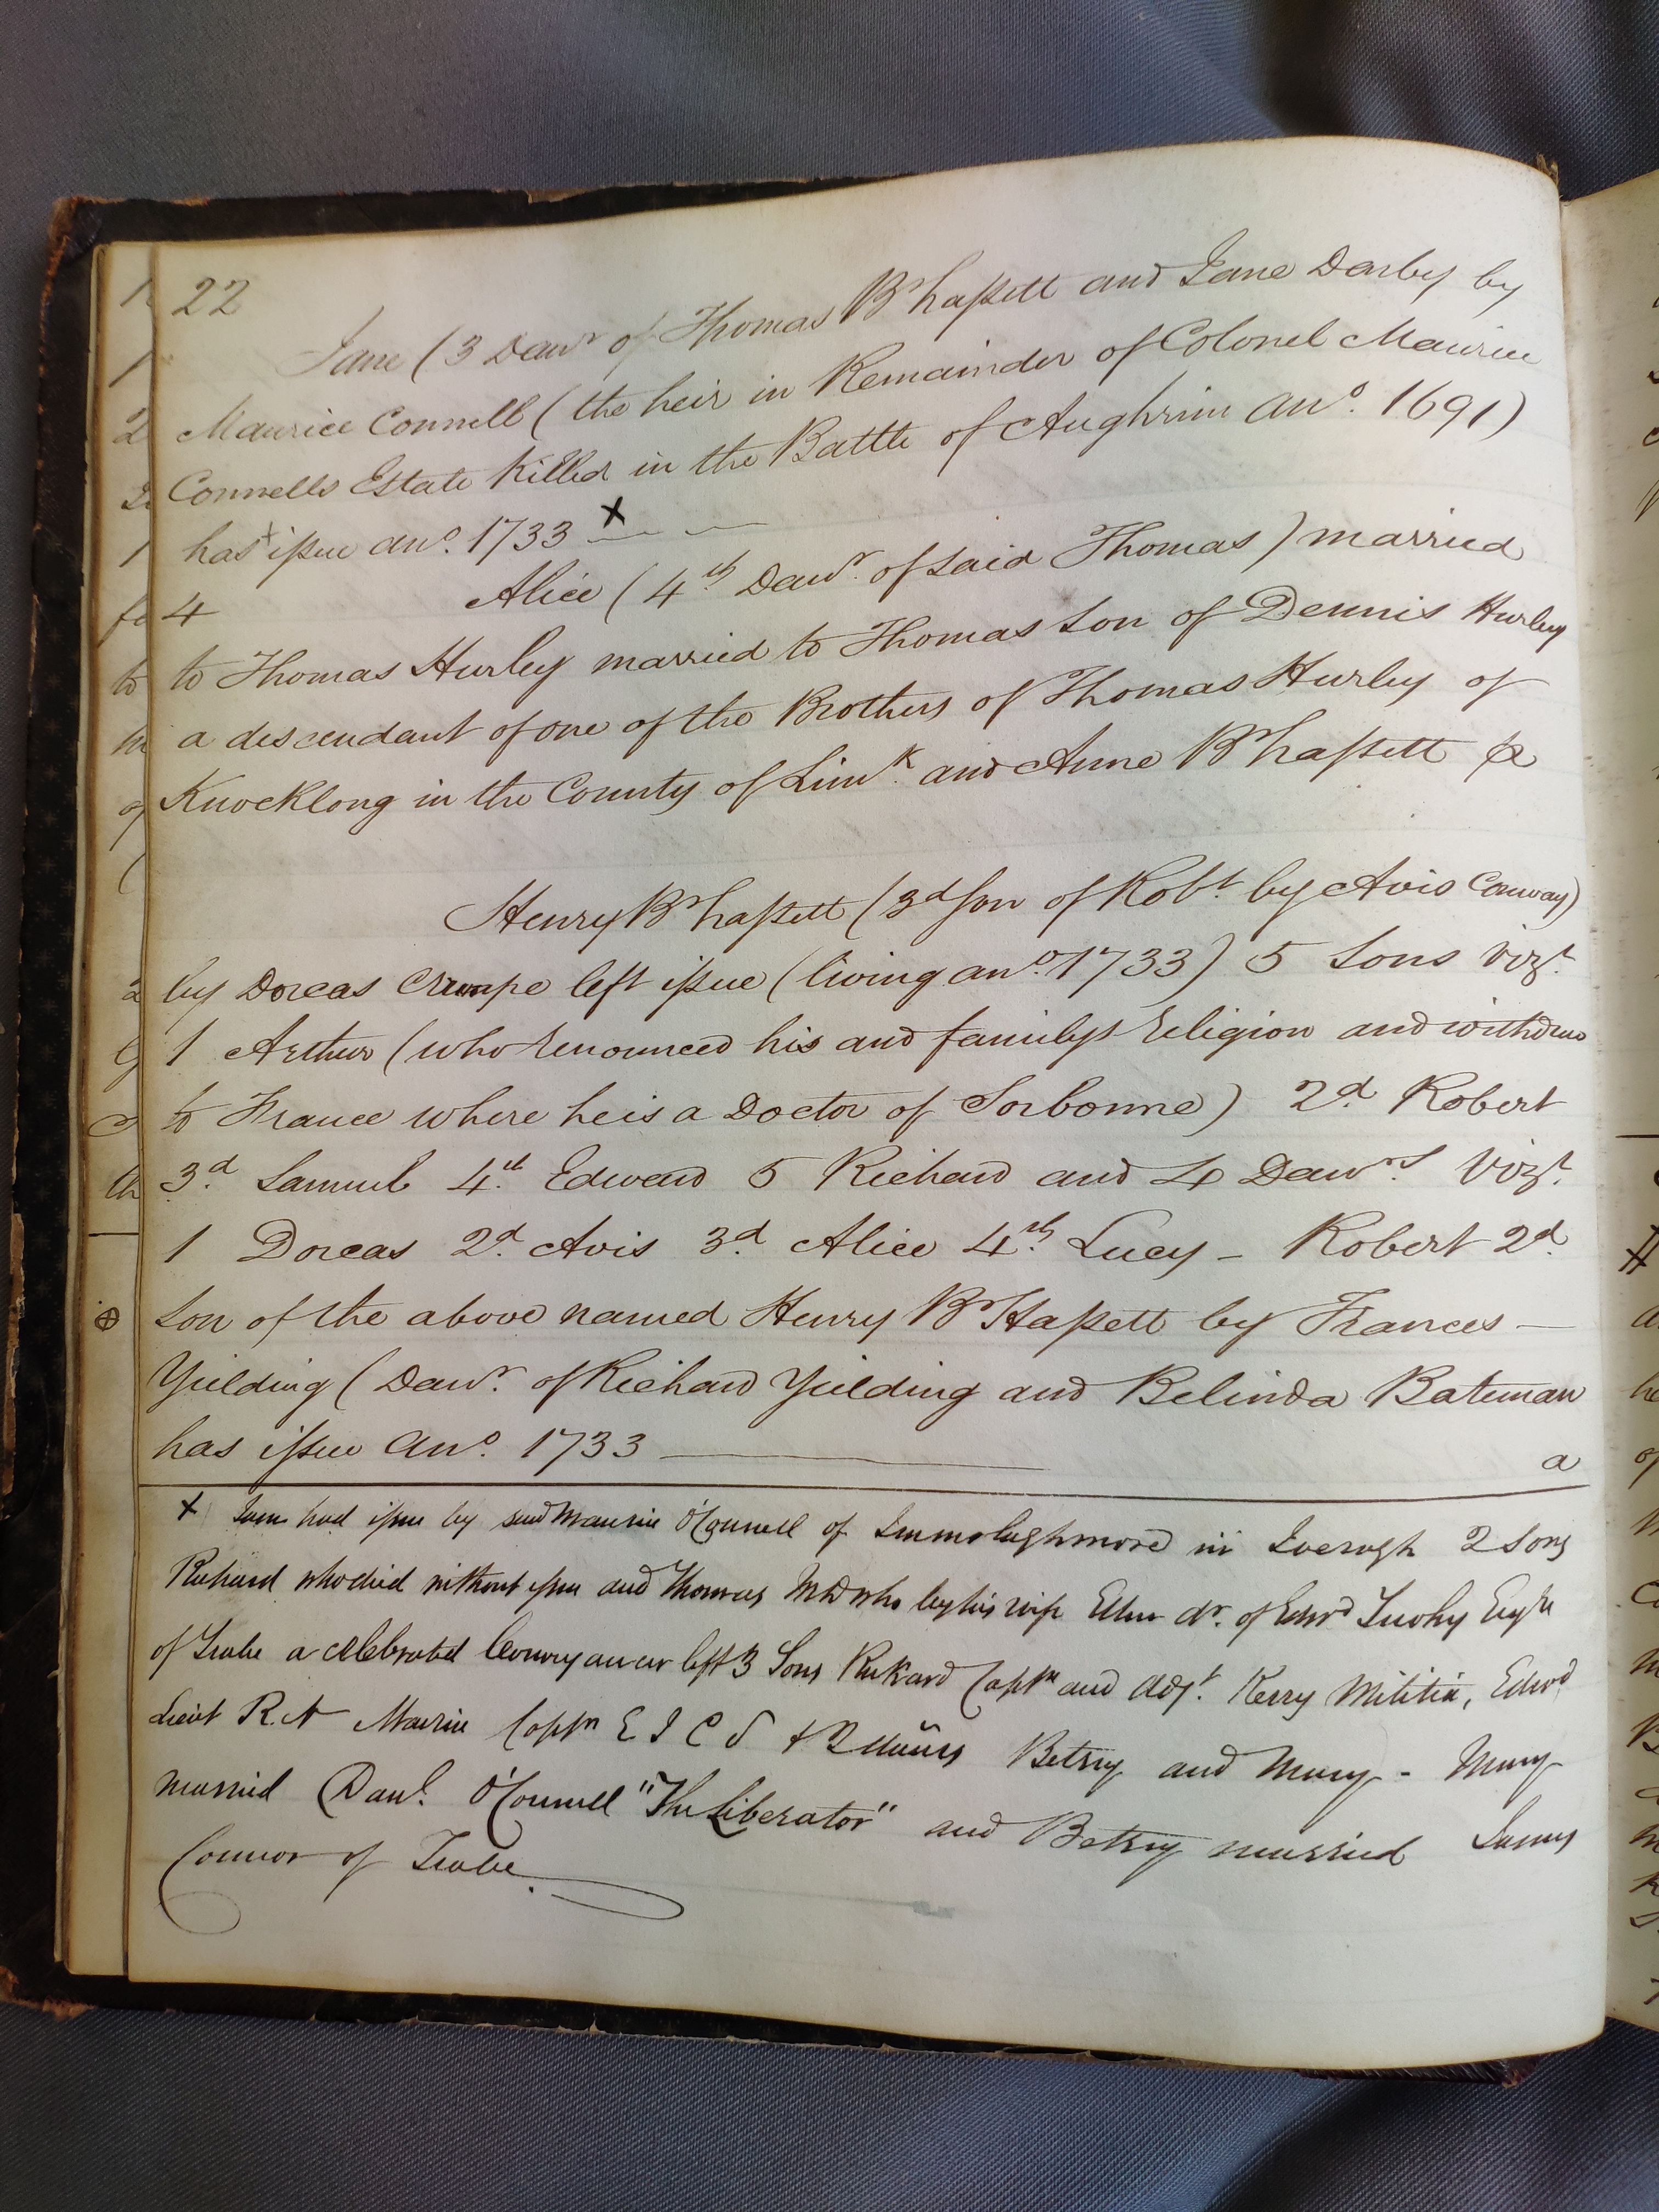 22
Jane (3 Dawr of Thomas Br hassett and Jane Darby by
Maurice Connell (the heir in Remainder of Colonel Maurice
Connells Estate Killed in the Battle of Aughrim Ano. 1691)
has x issue ano. 1733 x
4 Alice (4th Dawr. of said Thomas) married
to Thomas Hurley married to Thomas Son of Dennis Hurley
a descendant of one of the Brothers of Thomas Hurley of
Knocklong in the County of Limk. and Anne Br hassett &
Henry Br hassett (3d Son of Robt. by Avis Conway)
by Dorcas Crumpe left issue (living ano. 1733) 5 Sons vizt.
1 Arthur (who renounced his and familys religion and withdrew
to France where he is a Doctor of Sorbonne) 2d. Robert
3d. Samuel 4th. Edward 5 Richard and 4 Dawrs. vizt.
1 Dorcas 2d. Avis 3d. Alice 4th. Lucy - Robert 2d.
Son of the above named Henry Br Hassett by Frances —
Yielding (Dawr. of Richard Yielding and Belinda Bateman
has issue Ano. 1733
a
x Jane had issue by said Maurice O'Connell of in Iveragh 2 Sons
Richard who died without issue and Thomas MD who by his wife Ellen dr. of Edwd Tuohy Esqre
of Tralee a celebrated Conveyancer left 3 Sons Rickard Captn and Adjt. Kerry Militia, Edwd
Lieut R.N Maurice Captn E I C S & 2 Betsey and Mary - Mary
married Danl. O'Connell "The Liberator" and Betsey married James
Connor of Tralee.